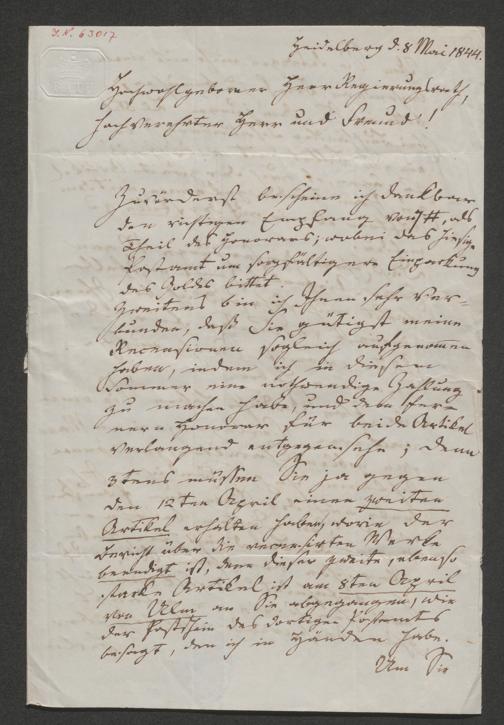 J. N. 63017
Heidelberg d. 8 Mai 1844.
Hochwohlgeborner Herr Regierungsrath,
hochverehrter Herr und Freund!
Zuvörderst bescheine ich dankbar
den richtigen Empfang von als
Theil des Honorars; wobei das hiesige
Postamt um sorgfältigere Einpackung
des Goldes bittet.
Zweitens bin ich Ihnen sehr ver-
bunden, daß Sie gütigst meine
Recensionen sogleich aufgenommen
haben, indem ich in diesem
Sommer eine nothwendige Zahlung
zu machen habe, und dem fer-
nern Honorar für beide Artikel
verlangend entgegensehe; denn
3tens müssen Sie ja gegen
den 12ten April einen zweiten
Artikel erhalten haben, worin der
Bericht über die recensirten Werke
beendigt ist, denn dieser zweite, ebenso
starke Artikel ist am 8ten April
von Ulm an Sie abgegangen, wie
der Postschein des dortigen Postamts
besagt, den ich in Händen habe.
Um Sie